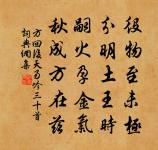 役物至未極
分明土王時
嗣火孕金氣
秋成方在茲
方回後天易吟三十首
詞典網集